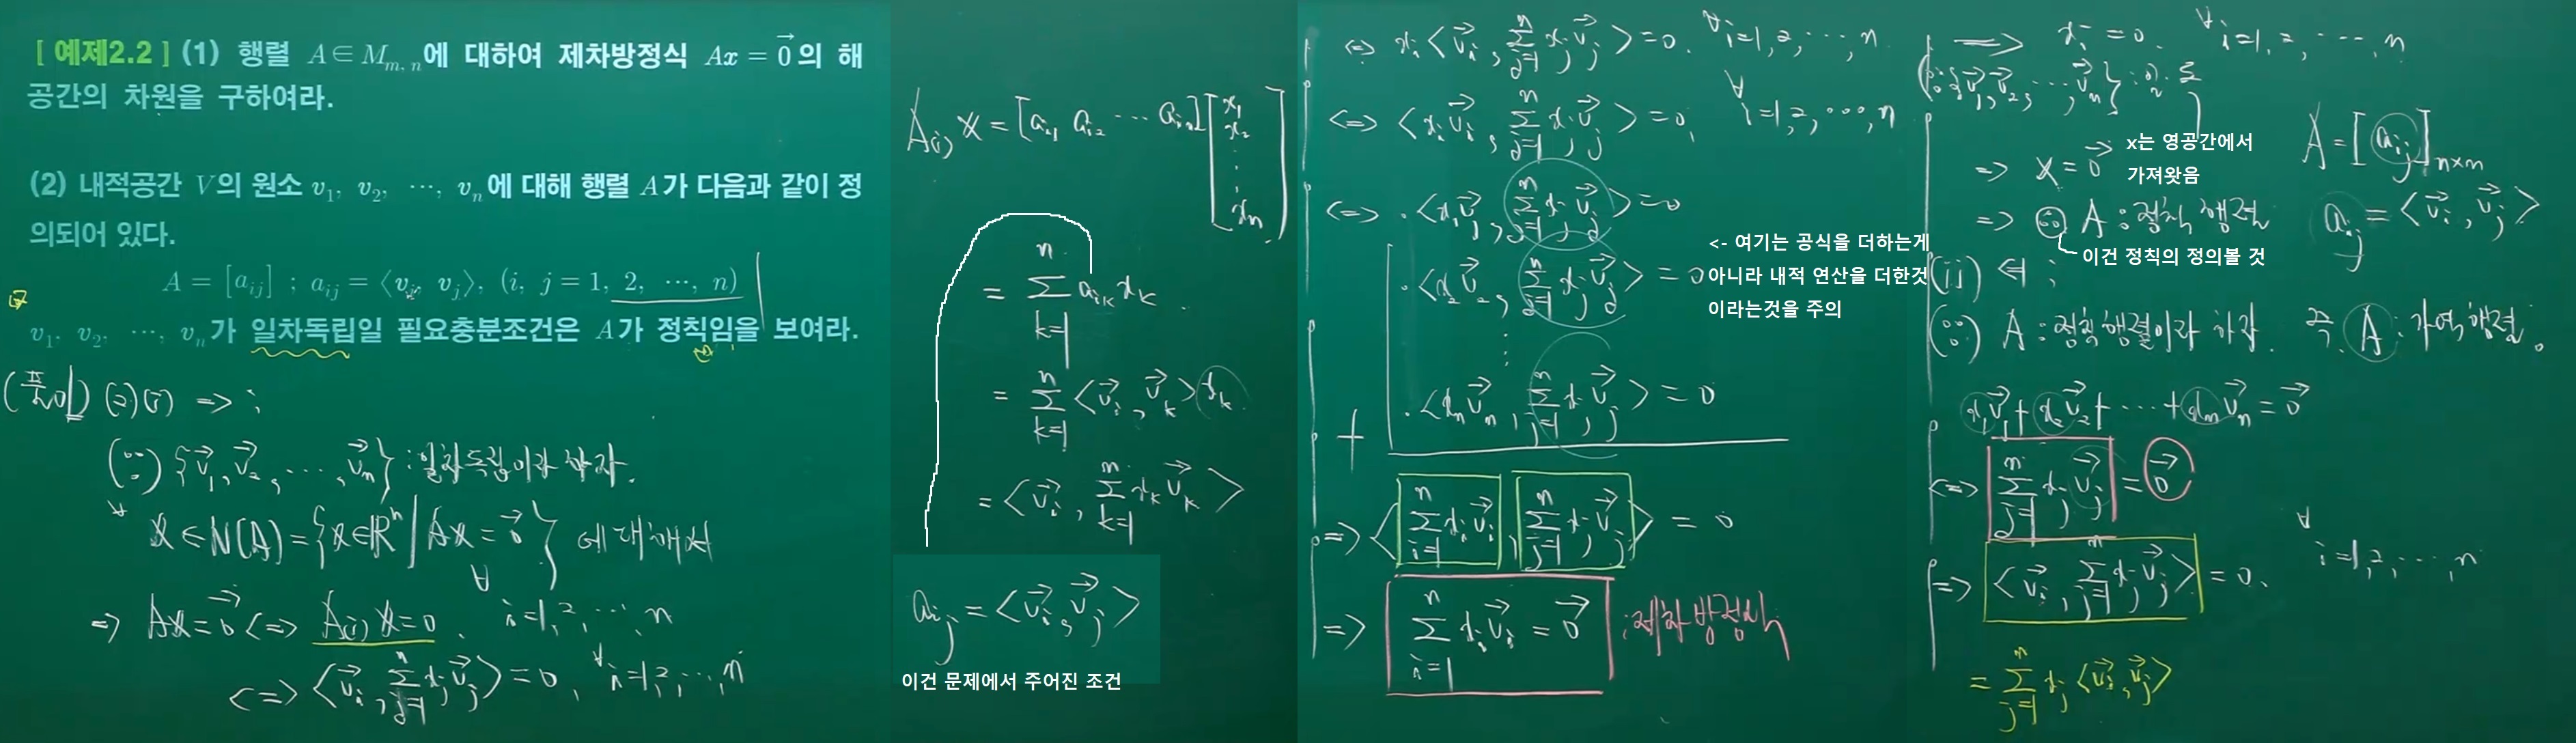 [ 예제2.2 ] (1) 행렬 A ∈ M_{m, n}에 대하여 제차방정식 Ax = \vec{0}의 해
공간의 차원을 구하여라.
(2) 내적공간 V의 원소 v_1, v_2, ⋯, v_n에 대해 행렬 A가 다음과 같이 정
의되어 있다.
A = [a_{ij}] ; a_{ij} = ⟨v_i, v_j⟩, (i, j = 1, 2, ⋯, n)
v_1, v_2, ⋯, v_n가 일차독립일 필요충분조건은 A가 정칙임을 보여라.
(풀이) (2) (i) => ;
(∵) {\vec{v}_1, \vec{v}_2, ⋯, \vec{v}_n} : 일차독립이라 하자.
∀ x ∈ N(A) = {x ∈ R^n | Ax = \vec{0}} 에 대해서
=> Ax = \vec{0} <=> A_{(i)} x = 0, ∀ i = 1, 2, ⋯, n
<=> ⟨\vec{v}_i, Σ_{j=1}^{n} x_j \vec{v}_j⟩ = 0, ∀ i = 1, 2, ⋯, n
A_{(i)} x = [a_{i1} a_{i2} ⋯ a_{in}] [x_1 x_2 ⋮ x_n]
= Σ_{k=1}^{n} a_{ik} x_k
= Σ_{k=1}^{n} ⟨\vec{v}_i, \vec{v}_k⟩ x_k
= ⟨\vec{v}_i, Σ_{k=1}^{n} x_k \vec{v}_k⟩
a_{ij} = ⟨\vec{v}_i, \vec{v}_j⟩
이건 문제에서 주어진 조건
<=> x_i ⟨\vec{v}_i, Σ_{j=1}^{n} x_j \vec{v}_j⟩ = 0, ∀ i = 1, 2, ⋯, n
<=> ⟨x_i \vec{v}_i, Σ_{j=1}^{n} x_j \vec{v}_j⟩ = 0, ∀ i = 1, 2, ⋯, n
<=> · ⟨x_1 \vec{v}_1, Σ_{j=1}^{n} x_j \vec{v}_j⟩ = 0
· ⟨x_2 \vec{v}_2, Σ_{j=1}^{n} x_j \vec{v}_j⟩ = 0
⋮
+ · ⟨x_n \vec{v}_n, Σ_{j=1}^{n} x_j \vec{v}_j⟩ = 0
<- 여기는 공식을 더하는게
아니라 내적 연산을 더한것
이라는것을 주의
=> ⟨Σ_{i=1}^{n} x_i \vec{v}_i, Σ_{j=1}^{n} x_j \vec{v}_j⟩ = 0
=> Σ_{i=1}^{n} x_i \vec{v}_i = \vec{0} : 제차방정식
=> x_i = 0, ∀ i = 1, 2, ⋯, n
(∵ {\vec{v}_1, \vec{v}_2, ⋯, \vec{v}_n} : 일.독)
=> x = \vec{0}
x는 영공간에서
가져왓음
A = [a_{ij}]_{n×n}
=> ∴ A : 정칙행렬
a_{ij} = ⟨\vec{v}_i, \vec{v}_j⟩
이건 정칙의 정의볼 것
(ii) <= ;
(∵) A : 정칙행렬이라 하자. 즉, A : 가역행렬.
x_1 \vec{v}_1 + x_2 \vec{v}_2 + ⋯ + x_n \vec{v}_n = \vec{0}
<=> Σ_{j=1}^{n} x_j \vec{v}_j = \vec{0}
=> ⟨\vec{v}_i, Σ_{j=1}^{n} x_j \vec{v}_j⟩ = 0, ∀ i = 1, 2, ⋯, n
= Σ_{j=1}^{n} x_j ⟨\vec{v}_i, \vec{v}_j⟩